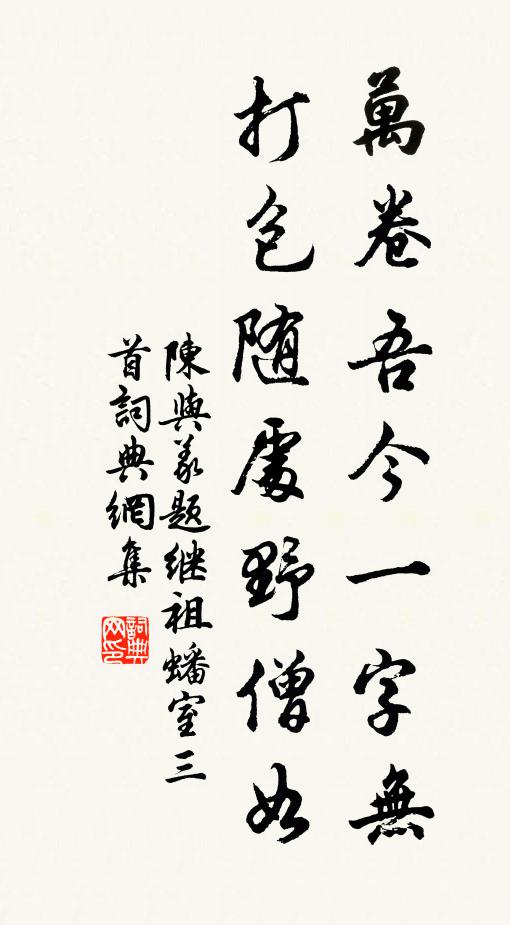 萬卷吾今一字無
打包随處野僧如
陳與義題继祖蟠室三
首詞典網集
詞典网印